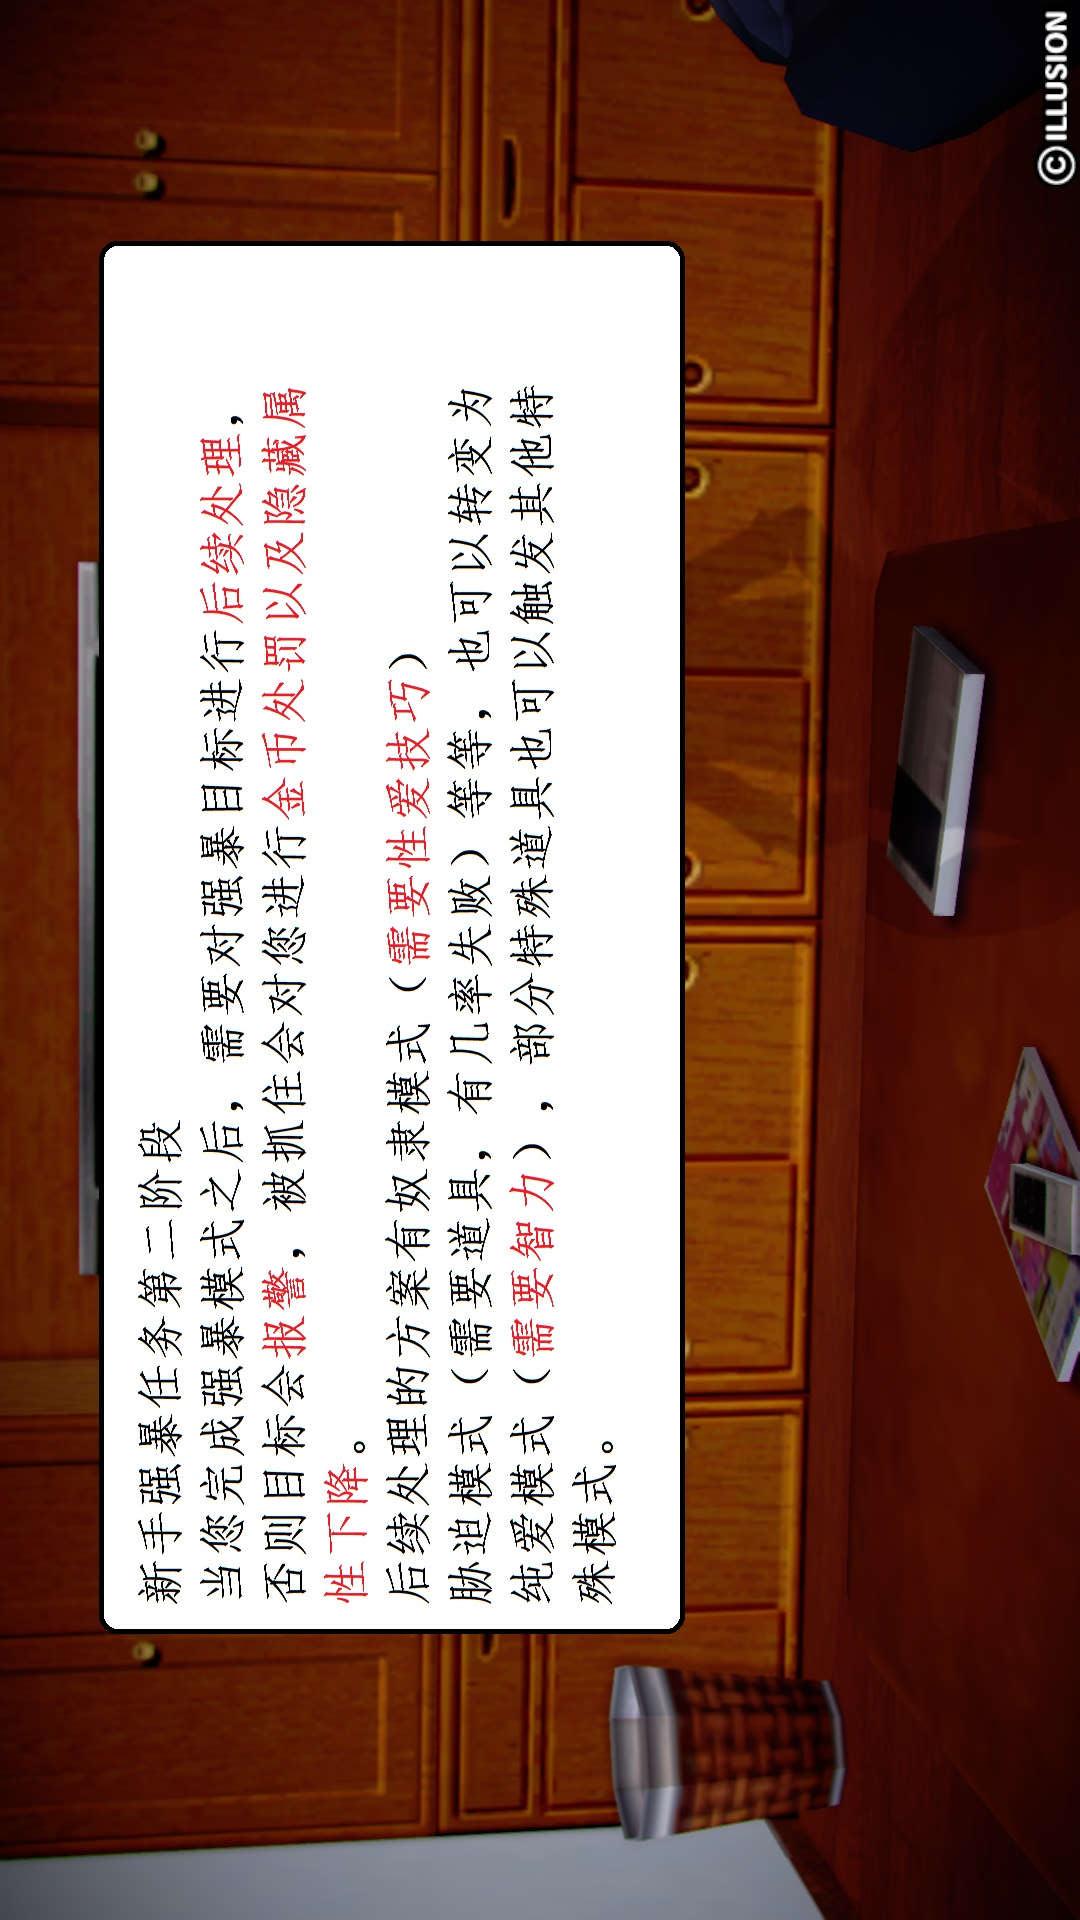 新手强暴任务第二阶段
当您完成强暴模式之后，需要对强暴目标进行后续处理，
否则目标会报警，被抓住会对您进行金币处罚以及隐藏属
性下降。
后续处理的方案有奴隶模式（需要性爱技巧）
胁迫模式（需要道具，有几率失败）等等，也可以转变为
纯爱模式（需要智力），部分特殊道具也可以触发其他特
殊模式。
©ILLUSION